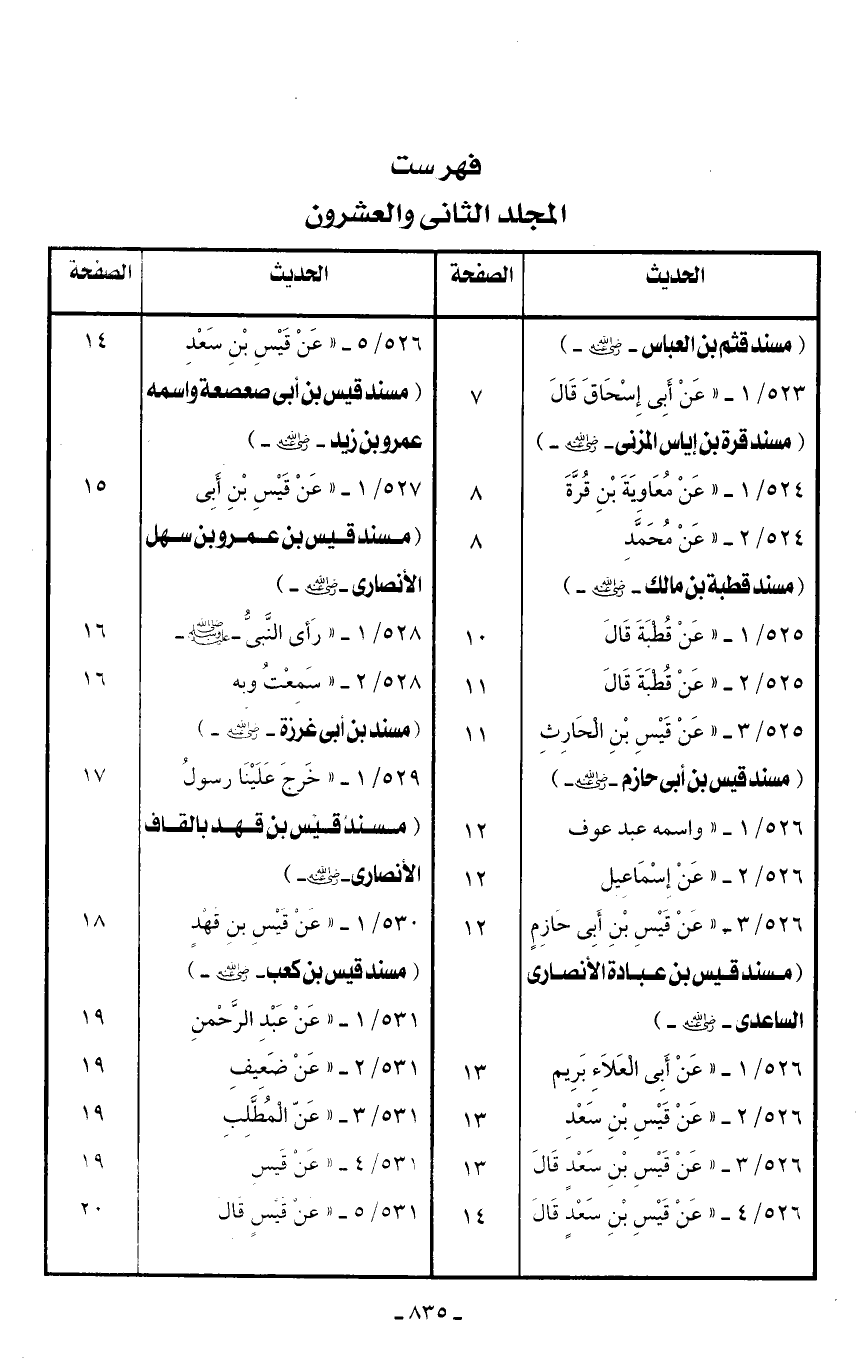 فهرست
المجلد الثانى والعشرون
الحديث الصفحة
( مسند قثم بن العباس ـ رضي الله عنه ـ )
٥٢٣/ ١ ـ « عَنْ أَبِى إِسْحَاقَ قَالَ ٧
( مسند قرة بن إياس المزنى ـ رضي الله عنه ـ )
٥٢٤/ ١ ـ « عَنْ مُعَاوِيَةَ بْنِ قُرَّةَ ٨
٥٢٤/ ٢ ـ « عَنْ مُحَمَّدِ ٨
( مسند قطبة بن مالك ـ رضي الله عنه ـ )
٥٢٥/ ١ ـ « عَنْ قُطْبَةَ قَالَ ١٠
٥٢٥/ ٢ ـ « عَنْ قُطْبَةَ قَالَ ١١
٥٢٥/ ٣ ـ « عَنْ قَيْسِ بْنِ الْحَارِثِ ١١
( مسند قيس بن أبى حازم ـ رضي الله عنه ـ )
٥٢٦/ ١ ـ « واسمه عبد عوف ١٢
٥٢٦/ ٢ ـ « عَنْ إِسْمَاعِيل ١٢
٥٢٦/ ٣ ـ « عَنْ قَيْسِ بْنِ أَبِى حَازِمٍ ١٢
( مسند قيس بن عبادة الأنصارى
الساعدى ـ رضي الله عنه ـ )
٥٢٦/ ١ ـ « عَنْ أَبِى الْعَلاَءِ بَرِيم ١٣
٥٢٦/ ٢ ـ « عَنْ قَيْسِ بْنِ سَعْدِ ١٣
٥٢٦/ ٣ ـ « عَنْ قَيْسِ بْنِ سَعْدٍ قَالَ ١٣
٥٢٦/ ٤ ـ « عَنْ قَيْسِ بْنِ سَعْدٍ قَالَ ١٤
الحديث الصفحة
٥٢٦/ ٥ ـ « عَنْ قَيْسِ بْنِ سَعْدِ ١٤
( مسند قيس بن أبى صعصعة واسمه
عمرو بن زيد ـ رضي الله عنه ـ )
٥٢٧/ ١ ـ « عَنْ قَيْسِ بْنِ أَبِى ١٥
( مسند قيس بن عمرو بن سهل
الأنصارى ـ رضي الله عنه ـ )
٥٢٨/ ١ ـ « رَأَى النَّبىُّ ـ صلى الله عليه وسلم ـ ١٦
٥٢٨/ ٢ ـ « سَمِعْتُ وبه ١٦
( مسند بن أبى غرزة ـ رضي الله عنه ـ )
٥٢٩/ ١ ـ « خَرجَ عَلَيْنَا رسولُ ١٧
( مسند قيس بن قهد بالقاف
الأنصارى ـ رضي الله عنه ـ )
٥٣٠/ ١ ـ « عَنْ قَيْسِ بنِ قَهْدٍ ١٨
( مسند قيس بن كعب ـ رضي الله عنه ـ )
٥٣١/ ١ ـ « عَنْ عَبْدِ الرَّحْمنِ ١٩
٥٣١/ ٢ ـ « عَنْ ضَعِيفِ ١٩
٥٣١/ ٣ ـ « عَنِ الْمُطَّلِبِ ١٩
٥٣١/ ٤ ـ « عَنْ قَيْسِ ١٩
٥٣١/ ٥ ـ « عَنْ قَيْسٍ قَالَ ٢٠
ـ ٨٣٥ ـ